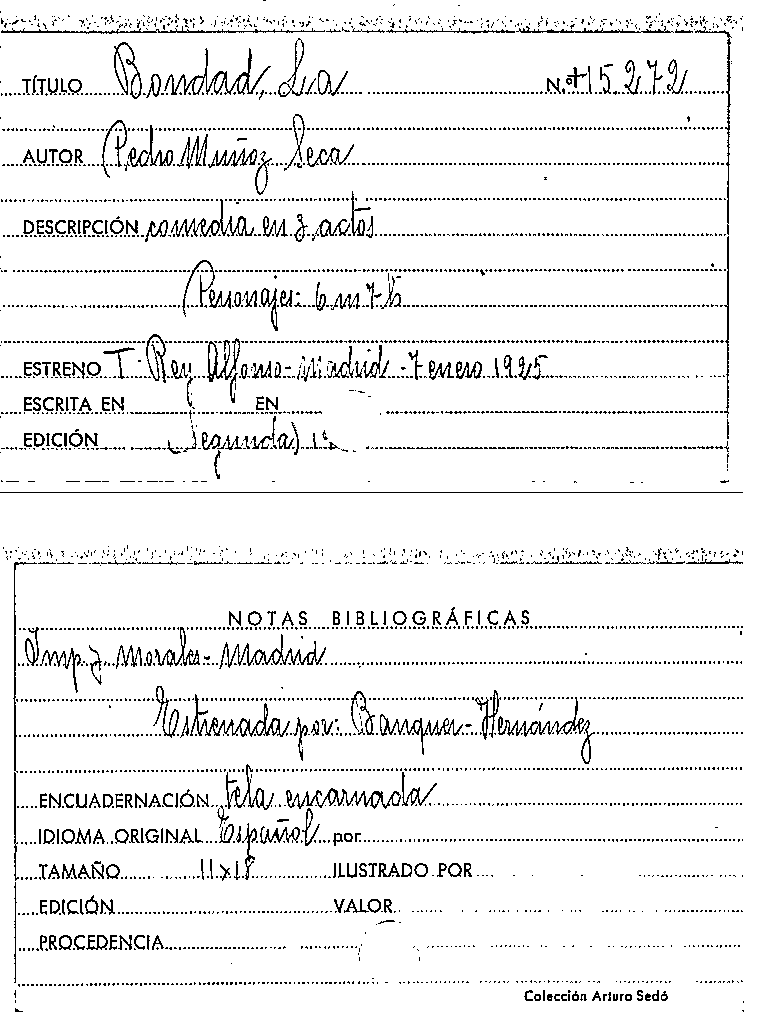 TÍTULO Bondad, La N.º 15272
AUTOR Pedro Muñoz Seca
DESCRIPCIÓN comedia en 3 actos
Personajes: 6 m 7 h
ESTRENO T. Rey Alfonso - Madrid - 7 enero 1925
ESCRITA EN EN
EDICIÓN (Segunda)
NOTAS BIBLIOGRÁFICAS
Imp J. Morales - Madrid
Estrenada por: Banquer - Hernández
ENCUADERNACIÓN tela encarnada
IDIOMA ORIGINAL Español por
TAMAÑO 11x18 ILUSTRADO POR
EDICIÓN VALOR
PROCEDENCIA
Colección Arturo Sedó